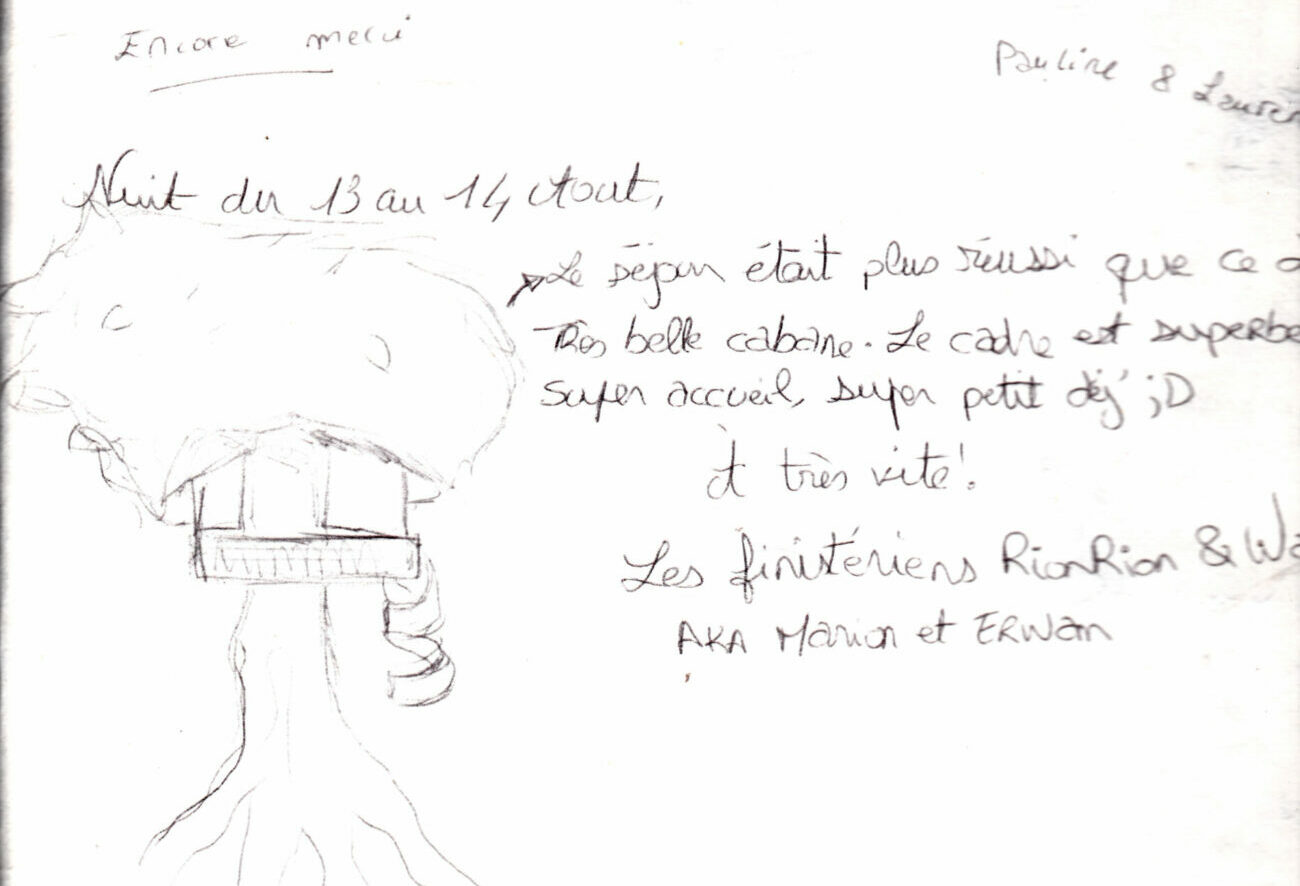 Encore merci
Pauline &
Nuit du 13 au 14 Aout,
Le séjour était plus réussi que ce
Très belle cabane. Le cadre est superbe
super accueil, super petit déj' ;D
A très vite !
Les finistériens RionRion &
AKA Marion et ERWan